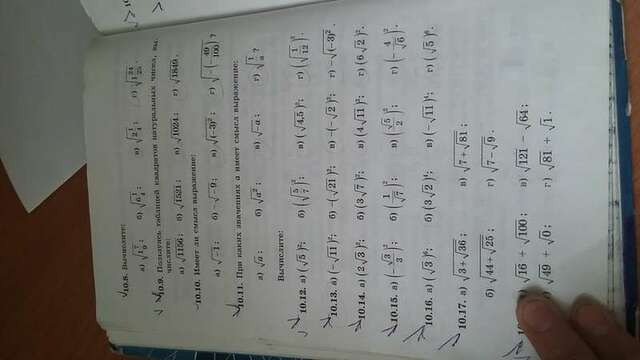 10.8. Вычислите:
а) √1 7/9; б) √6 1/4; в) √2 1/4; г) √1 24/25.
10.9. Пользуясь таблицей квадратов натуральных чисел, вы-
числите:
а) √1156; б) √1521; в) √1024; г) √1849.
10.10. Имеет ли смысл выражение:
а) √-1; б) -√-9; в) √(-3)²; г) √-(-49/100)?
10.11. При каких значениях a имеет смысл выражение:
а) √a; б) √a²; в) √-a; г) √1/a?
Вычислите:
10.12. а) (√5)²; б) (√5/7)²; в) (√4,5)²; г) (√1/12)².
10.13. а) (-√11)²; б) -(√21)²; в) -(-√2)²; г) -√(-3)².
10.14. а) (2√3)²; б) (3√7)²; в) (4√11)²; г) (6√2)².
10.15. а) (-√3/3)²; б) (1/√7)²; в) (√5/2)²; г) (-4/√6)².
10.16. а) (√3)²; б) (3√2)²; в) (-√11)²; г) (√5)².
10.17. а) √3 + √36; в) √7 + √81;
б) √44 + √25; г) √7 - √9.
√16 + √100; в) √121 - √64;
√49 + √0; г) √81 + √1.